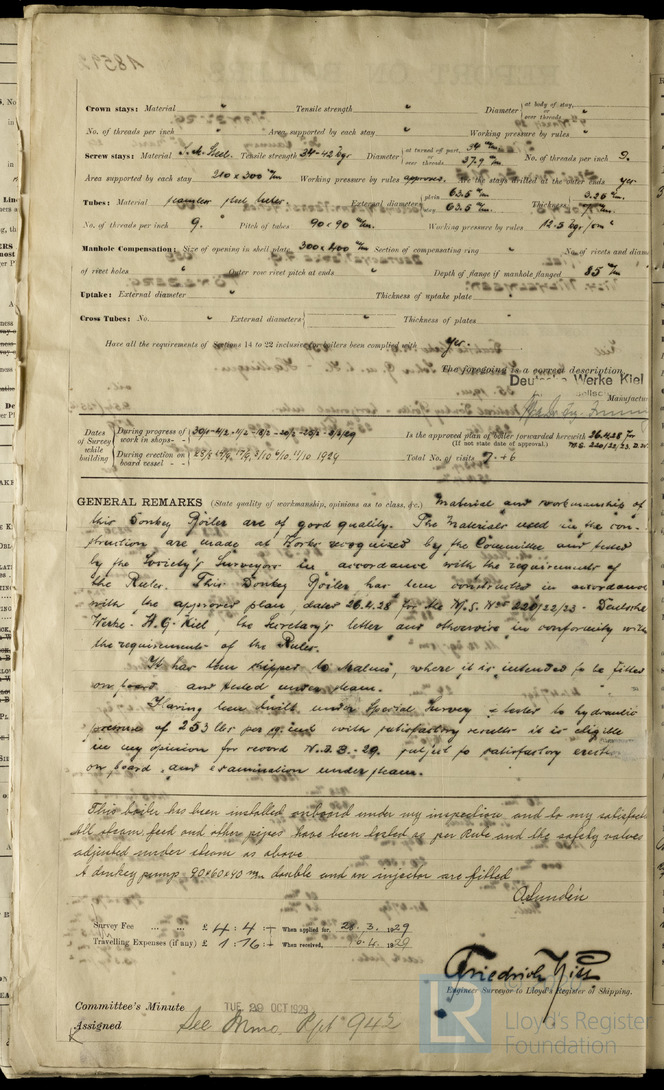 Crown stays: Material " Tensile strength " Diameter at body of stay, or over threads "
No. of threads per inch " Area supported by each stay " Working pressure by rules "
Screw stays: Material Steel Tensile strength 34-42 kgs Diameter at turned off part, or over threads 37.9 m/m No. of threads per inch 9.
Area supported by each stay 210 x 200 m/m Working pressure by rules approved. Are the stays drilled at the outer ends yes
Tubes: Material seamless steel tubes External diameters plain 63.5 m/m stay 63.5 m/m. Thickness 3.25 m/m.
No. of threads per inch 9. Pitch of tubes 90 x 90 m/m. Working pressure by rules 12.5 kgs/cm "
Manhole Compensation: Size of opening in shell plate 300 x 400 m/m Section of compensating ring " No. of rivets and diam
of rivet holes " Outer row rivet pitch at ends " Depth of flange if manhole flanged 85 m/m
Uptake: External diameter " Thickness of uptake plate
Cross Tubes: No. " External diameters " Thickness of plates
Have all the requirements of Sections 14 to 22 inclusive for boilers been complied with yes.
The foregoing is a correct description,
Deutsche Werke Kiel
Manufactu
Dates of Survey while building During progress of work in shops - - 1929 Is the approved plan of boiler forwarded herewith 26.4.28 for
(If not state date of approval.) W.S. 220/22/23. D.W.
During erection on board vessel - - - 1929 Total No. of visits 7 + 6
GENERAL REMARKS (State quality of workmanship, opinions as to class, &c.) Material and workmanship of
this Donkey Boiler are of good quality. The Materials used in the con-
struction are made at Works recognized by the Committee and tested
by the Society's Surveyors in accordance with the requirements of
the Rules. This Donkey Boiler has been constructed in accordance
with the approved plan, dated 26.4.28 for the W.S. Nos 220/22/23 - Deutsche
Werke - A.G. Kiel, the Secretary's letter and otherwise in conformity with
the requirements of the Rules.
It has been shipped to Malmö, where it is intended to be fitted
on board and tested under steam.
Having been built under Special Survey & tested to hydraulic
pressure of 253 lbs per sq. inch with satisfactory results it is eligible
in my opinion for record N.D.B. - 29. subject to satisfactory erection
on board and examination under steam.
This boiler has been installed onboard under my inspection and to my satisfact
All steam feed and other pipes have been tested as per Rule and the safety valves
adjusted under steam as above
A donkey pump 90x60x90 m/m double and an injector are fitted
A Lundén
Survey Fee ... ... £ 4 : 4 : - When applied for, 28. 3. 1929
Travelling Expenses (if any) £ 1 : 16 : - When received, 4. 1929
Friedrich
Engineer Surveyor to Lloyd's Register of Shipping.
Committee's Minute TUE 29 OCT 1929
Assigned See Mmo. Rpt 945
LR
Lloyd's Register
Foundation